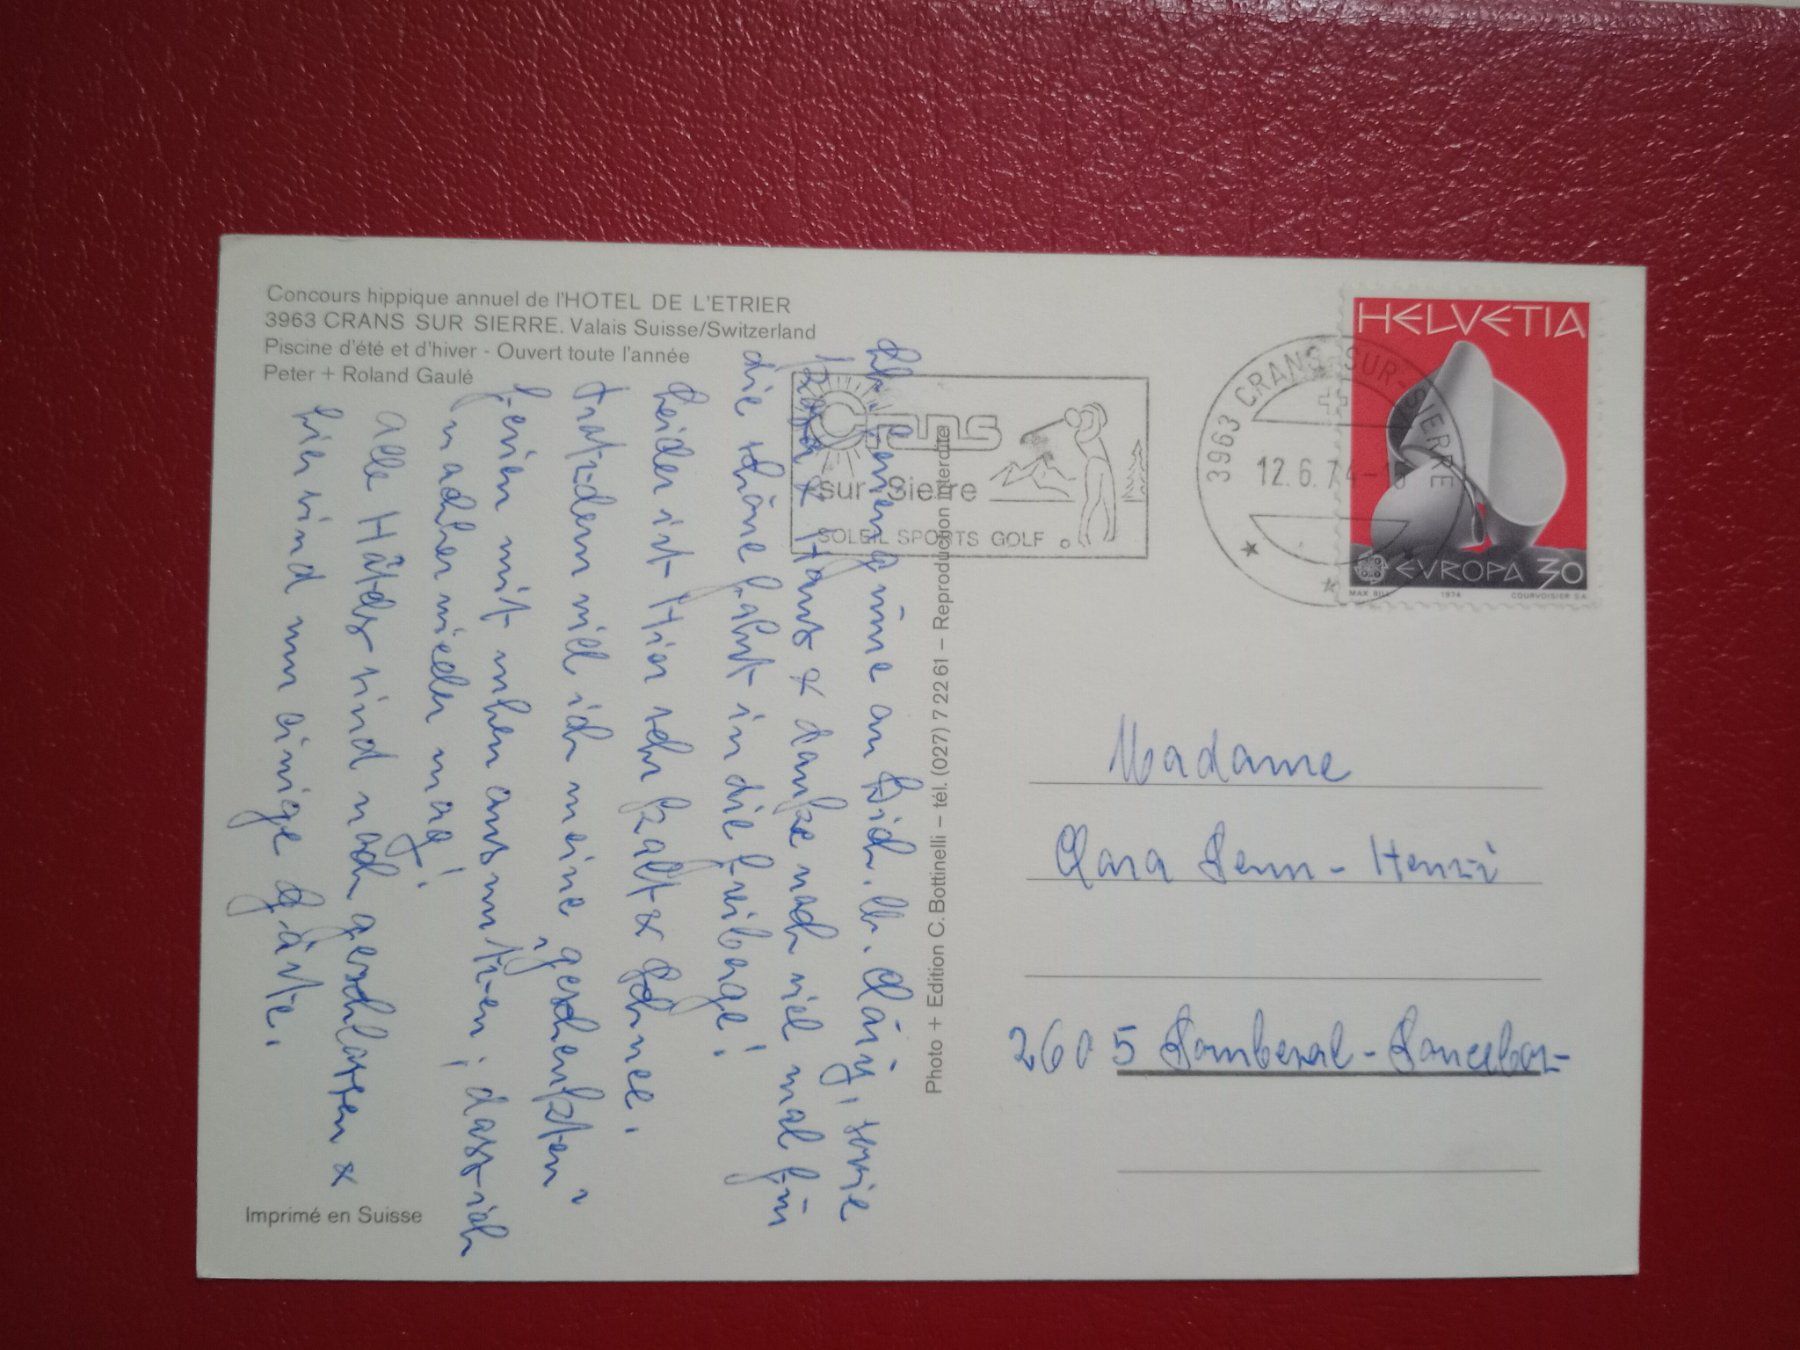 Concours hippique annuel de l'HOTEL DE L'ETRIER
3963 CRANS SUR SIERRE. Valais Suisse/Switzerland
Piscine d'été et d'hiver - Ouvert toute l'année
Peter + Roland Gaulé
Grüne an Dich, lb. Cläry, sowie
& Hans & danke noch viel mal für
die schöne Fahrt in die Freiberge!
Leider ist Hier sehr kalt & Schnee.
Trotzdem will ich meine „geschenkten"
Ferien mit ruhen ausnützen, dass ich
nachher wieder mag!
Alle Hôtels sind noch geschlossen &
hier sind nur einige Gäste.
Imprimé en Suisse
Photo + Edition C. Bottinelli – tél. (027) 7 22 61 – Reproduction interdite
Crans
sur Sierre
SOLEIL SPORTS GOLF
3963 CRANS-SUR-SIERRE
12.6.74-18
HELVETIA
EVROPA 30
MAX BILL 1974 COURVOISIER SA
Madame
Clara Senn-Henzi
2605 Sonceboz-